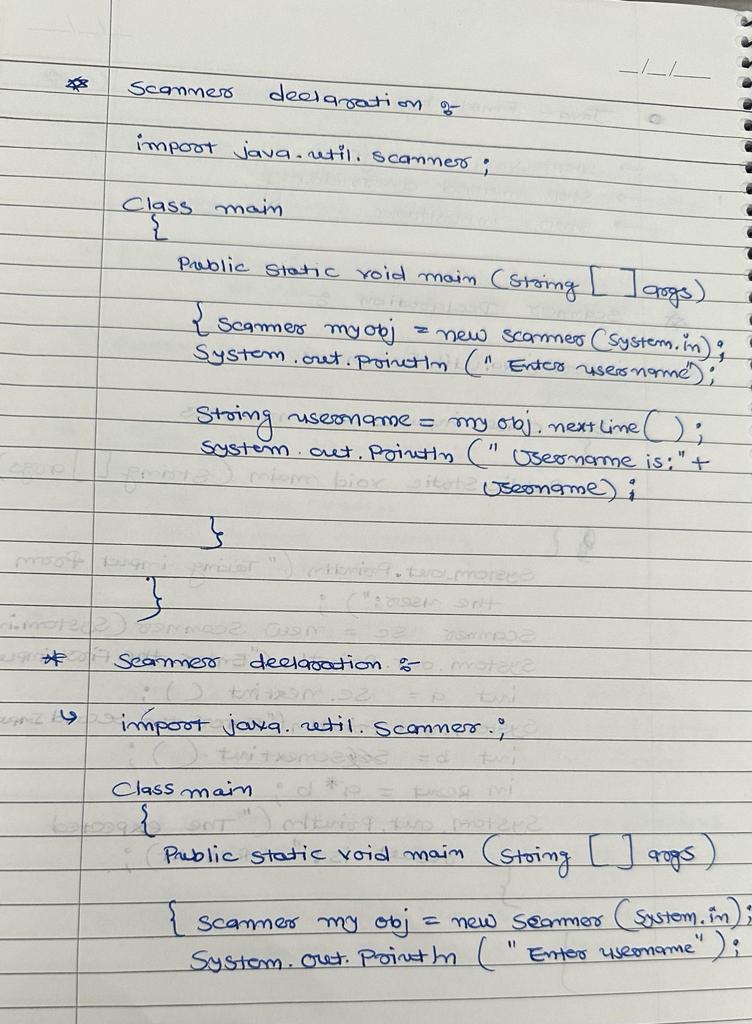 _/_/_
* Scanner declaration :-
import java.util.scanner;
Class main
{
Public static void main (String [ ] args)
{ Scanner myobj = new scanner (System.in);
System.out.Println (" Enter username");
String username = my obj.nextLine( );
System.out.Println (" Username is:" +
Username);
}
}
* Scanner declaration :-
↳ import java.util.Scanner.;
Class main
{
Public static void main (String [ ] args)
{ Scanner my obj = new Scanner (System.in);
System.out.Println ( " Enter username" );